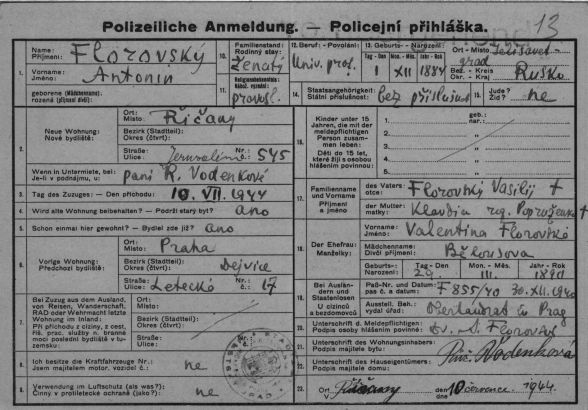 Polizeiliche Anmeldung. — Policejní přihláška.
13
1.
Name:
Příjmení: Florovský
Vorname:
Jméno: Antonin
geborene (Mädchenname):
rozená (příjmení dívčí):
10.
Familienstand:
Rodinný stav:
ženatý
11.
Religionsbekenntnis:
Nábož. vyznání:
pravosl.
12. Beruf: - Povolání:
Univ. prof.
13. Geburts- - Narození:
Tag - Den
Mon. - Měs.
Jahr - Rok
1 XII 1884
Ort - Místo: Jelisavet-
grad
Bez. - Kreis
Okr. - Kraj
Rusko
14.
Staatsangehörigkeit:
Státní příslušnost:
bez příslušnosti
15.
Jude?
Žid?
ne
2.
Neue Wohnung:
Nové bydliště:
Ort:
Místo: Říčany
Bezirk (Stadtteil):
Okres (čtvrť):
Straße:
Ulice: Jeruzalémě
Nr.:
č.: 545
Wenn in Untermiete, bei:
Je-li v podnájmu, u: paní R. Vodenkové
3.
Tag des Zuzuges: — Den příchodu: 10. VII. 1944
4.
Wird alte Wohnung beibehalten? — Podrží starý byt? ano
5.
Schon einmal hier gewohnt? — Bydlel zde již? ano
6.
Vorige Wohnung:
Předchozí bydliště:
Ort:
Místo: Praha
Bezirk (Stadtteil):
Okres (čtvrť): Dejvice
Straße:
Ulice: Letecká
Nr.:
č.: 17
Bei Zuzug aus dem Ausland,
von Reisen, Wanderschaft,
RAD oder Wehrmacht letzte
Wohnung im Inland:
Při příchodu z ciziny, z cest,
říš. prac. služby n. branné
moci poslední bydliště v tu-
zemsku:
Ort:
Místo:
Bezirk (Stadtteil):
Okres (čtvrť):
Straße:
Ulice:
8.
Ich besitze die Kraftfahrzeuge Nr.:
Jsem majitelem motor. vozidel č.: ne
9.
Verwendung im Luftschutz (als was?):
Činný v protiletecké ochraně (jako?): ne
16.
Kinder unter 15
Jahren, die mit der
meldepflichtigen
Person zusam-
men leben:
Děti do 15 let,
které žijí s osobou
hlášením povinnou:
geb.:
nar.:
1.
2. "
3. "
4. "
5. "
17.
Familienname
und Vorname
Příjmení
a jméno
des Vaters:
otce: Florovský Vasilij †
der Mutter:
matky: Klavdia †
18.
Der Ehefrau:
Manželky:
Vorname:
Jméno: Valentina Florovská
Mädchenname:
Dívčí příjmení: Bělousova
Geburts-
Narození:
Tag - Den
Mon. - Měs.
Jahr - Rok
29. III. 1890
19.
Bei Auslän-
dern und
Staatenlosen
U cizinců
a bezdomovců
Paß-Nr. und Datum:
pas č. a datum: F 855/40 30. XII. 1940
Ausstell. Beh.:
vydal úřad: Oberlandrat in Prag
20.
Unterschrift d. Meldepflichtigen:
Podpis osoby hlášením povinné: Dr. A. Florovský
21.
Unterschrift des Wohnungsinhabers:
Podpis majitele bytu:
Unterschrift des Hauseigentümers:
Podpis majitele domu: Vodenková
22.
Ort
V Říčany
den
dne 10 července 1944.